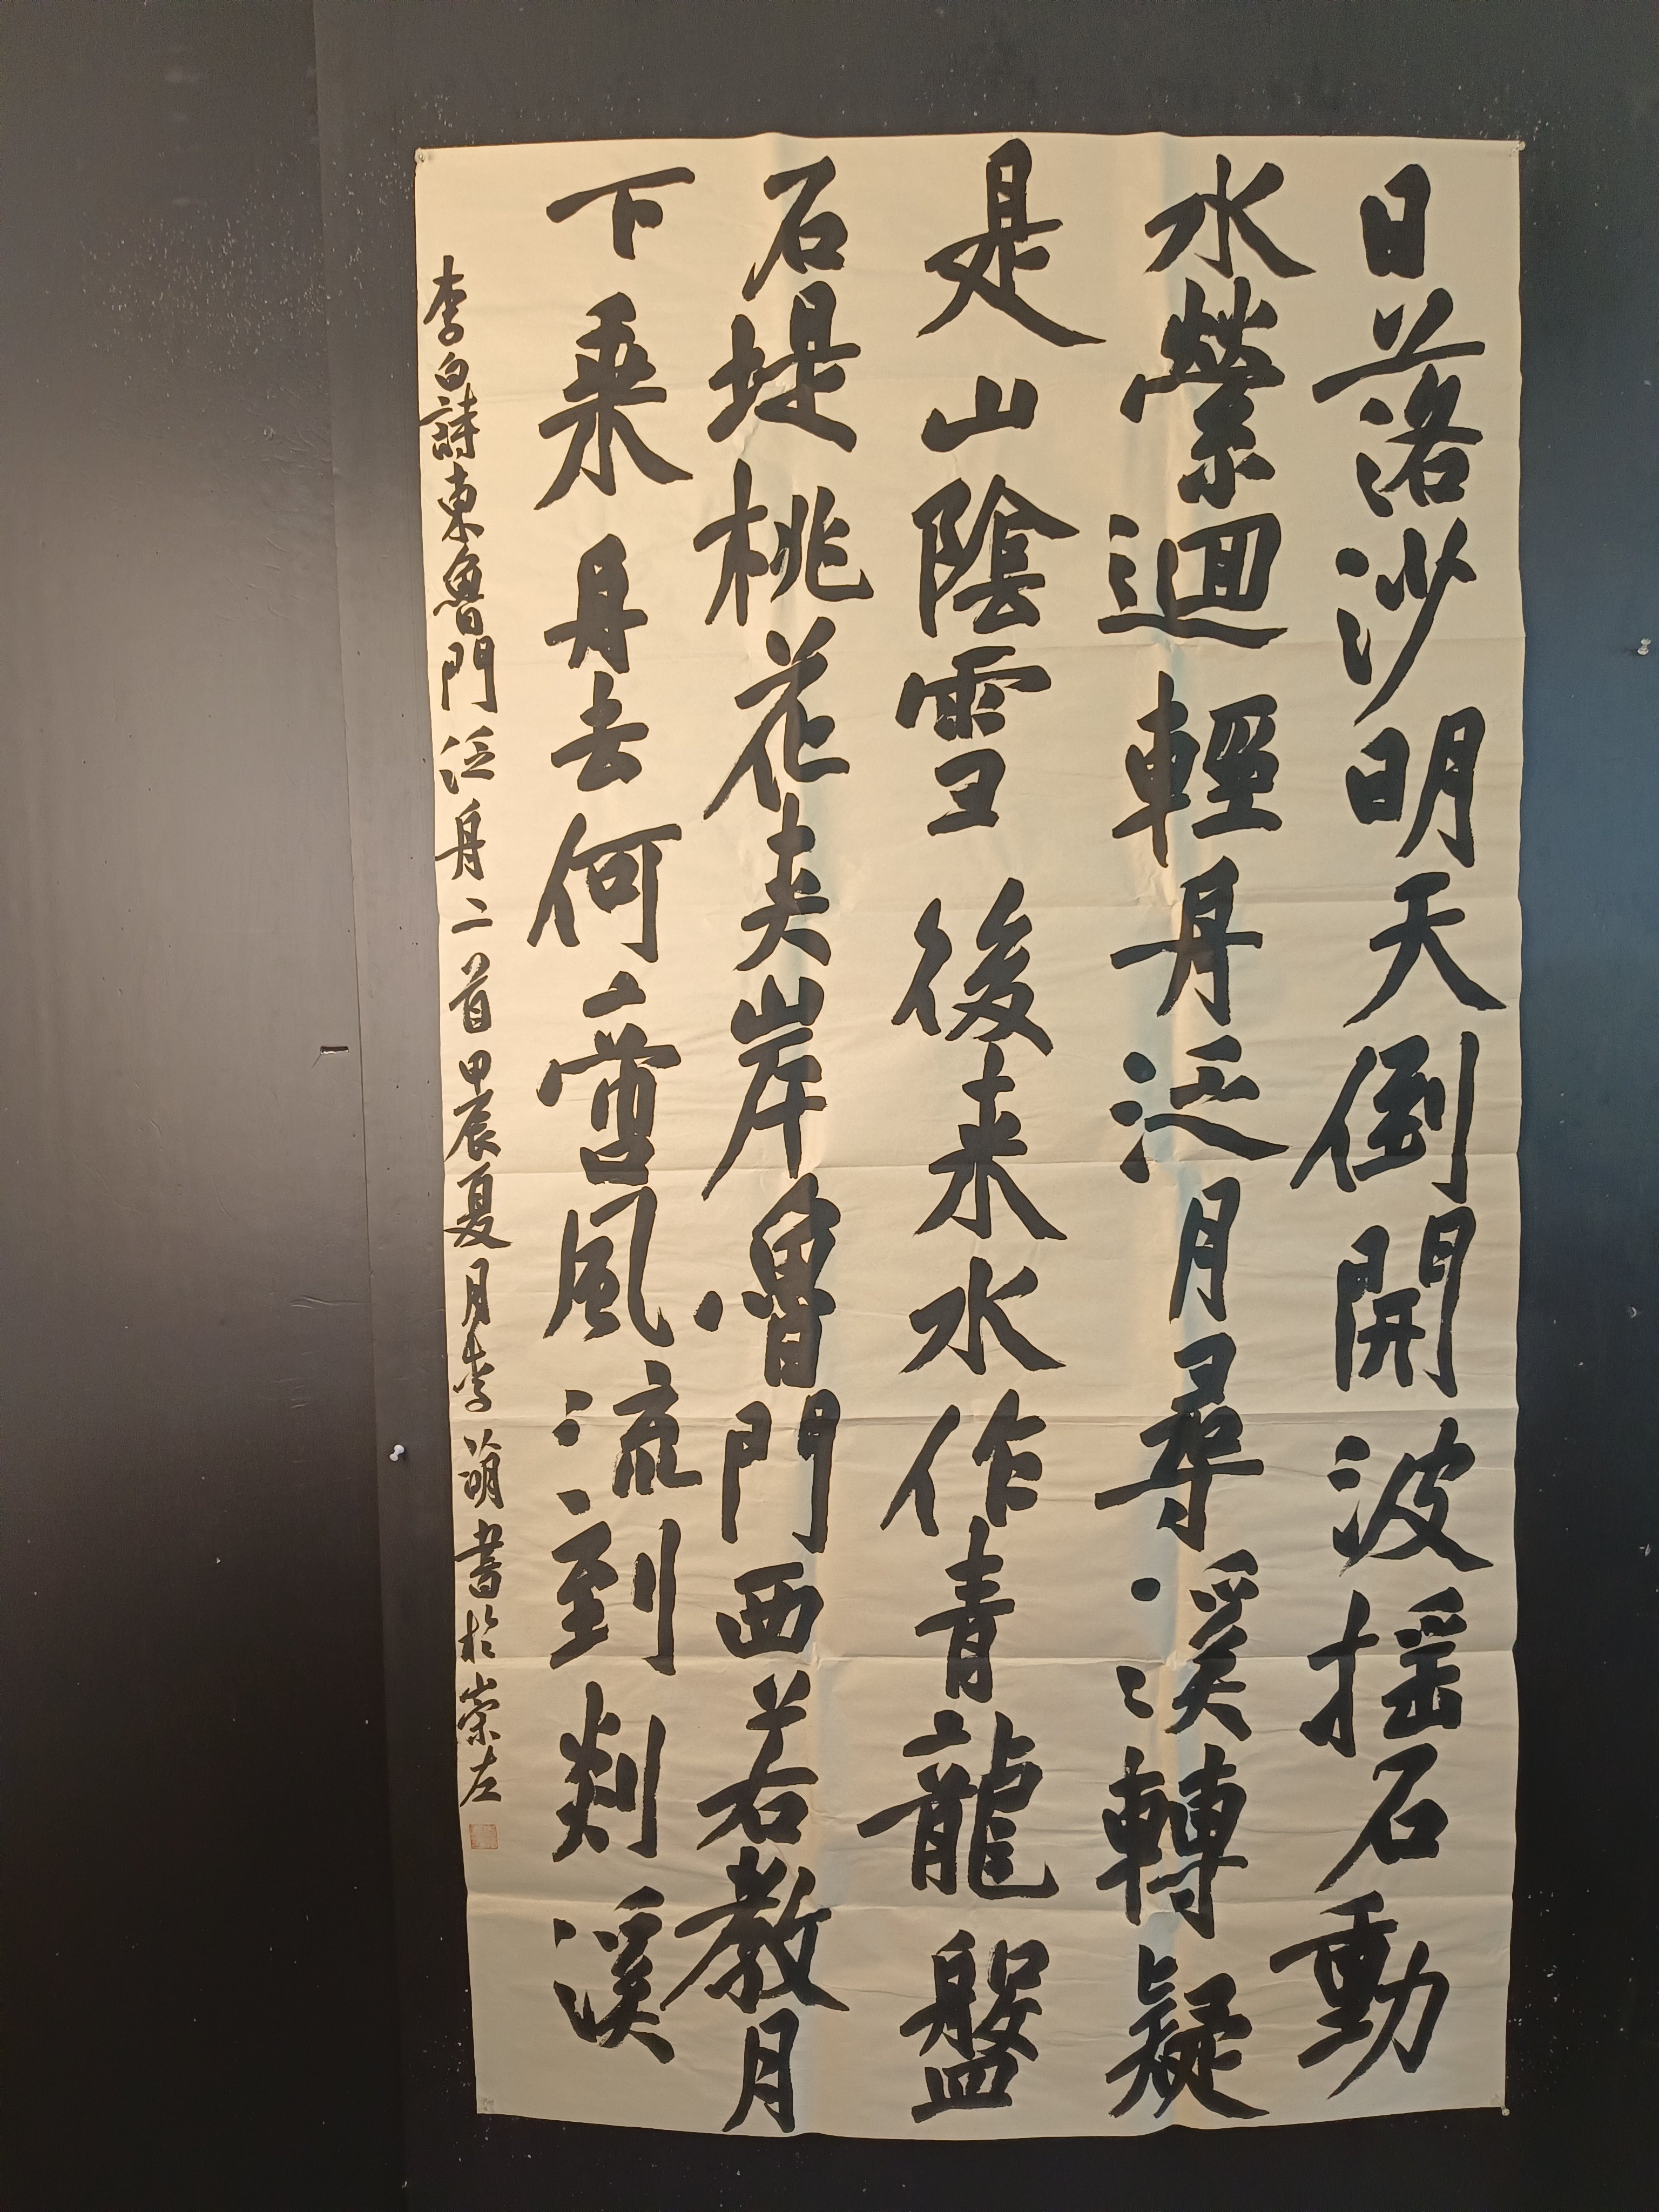 日落沙明天倒開波搖石動
水縈迴輕舟泛月尋溪轉疑
是山陰雪後来水作青龍盤
石堤桃花夾岸魯門西若教月
下乘舟去何啻風流到剡溪
李白詩東魯門泛舟二首甲辰夏月李萌書於崇左